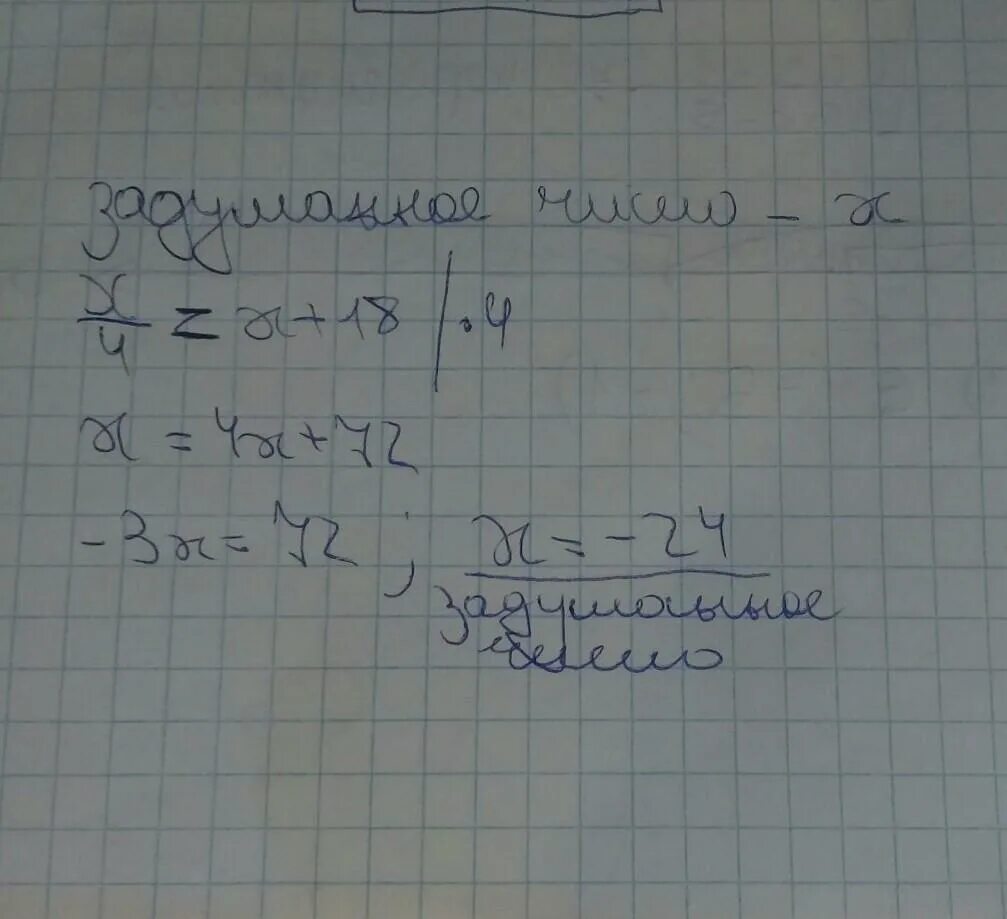 задуманное число – x
x/4 = x+18 | · 4
x = 4x+72
-3x = 72 ; x = -24
задуманное
число